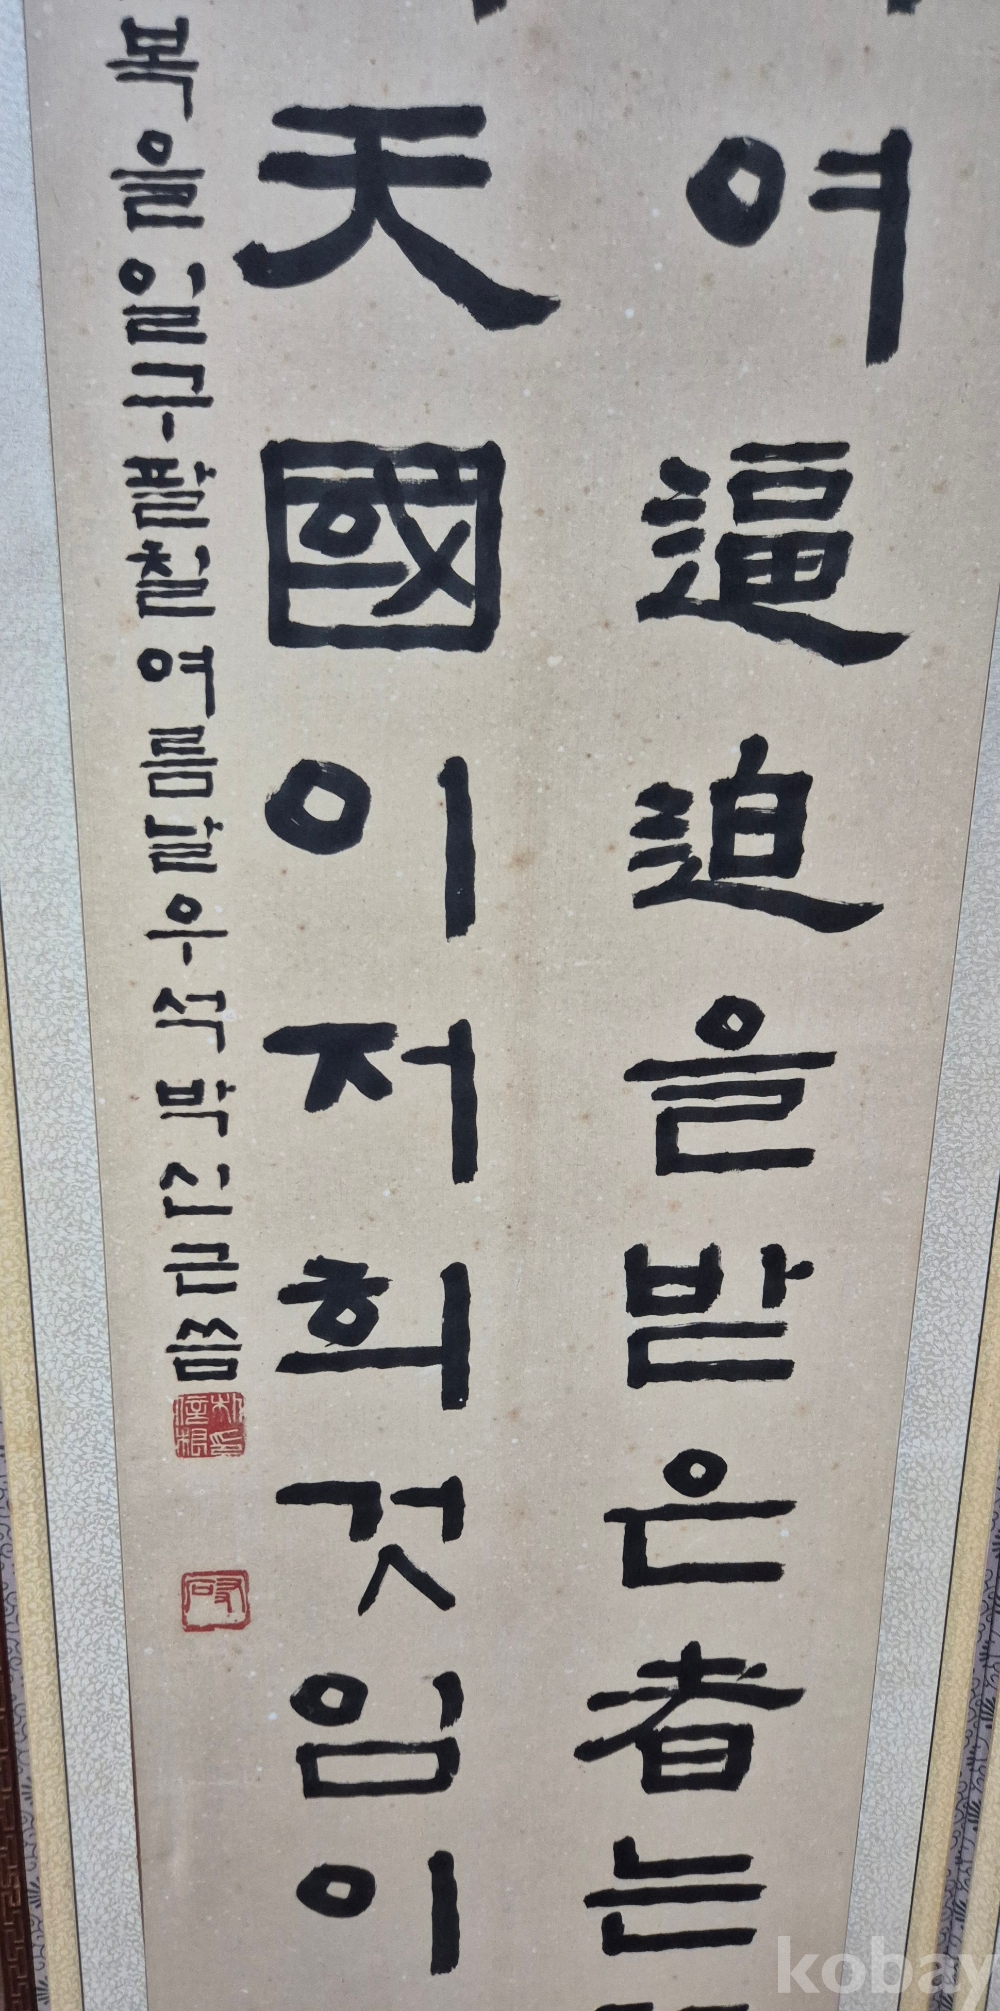 여逼迫을받은者는
天國이저희것임이
복을일구발칠여름날우석박신근쯤
kobay